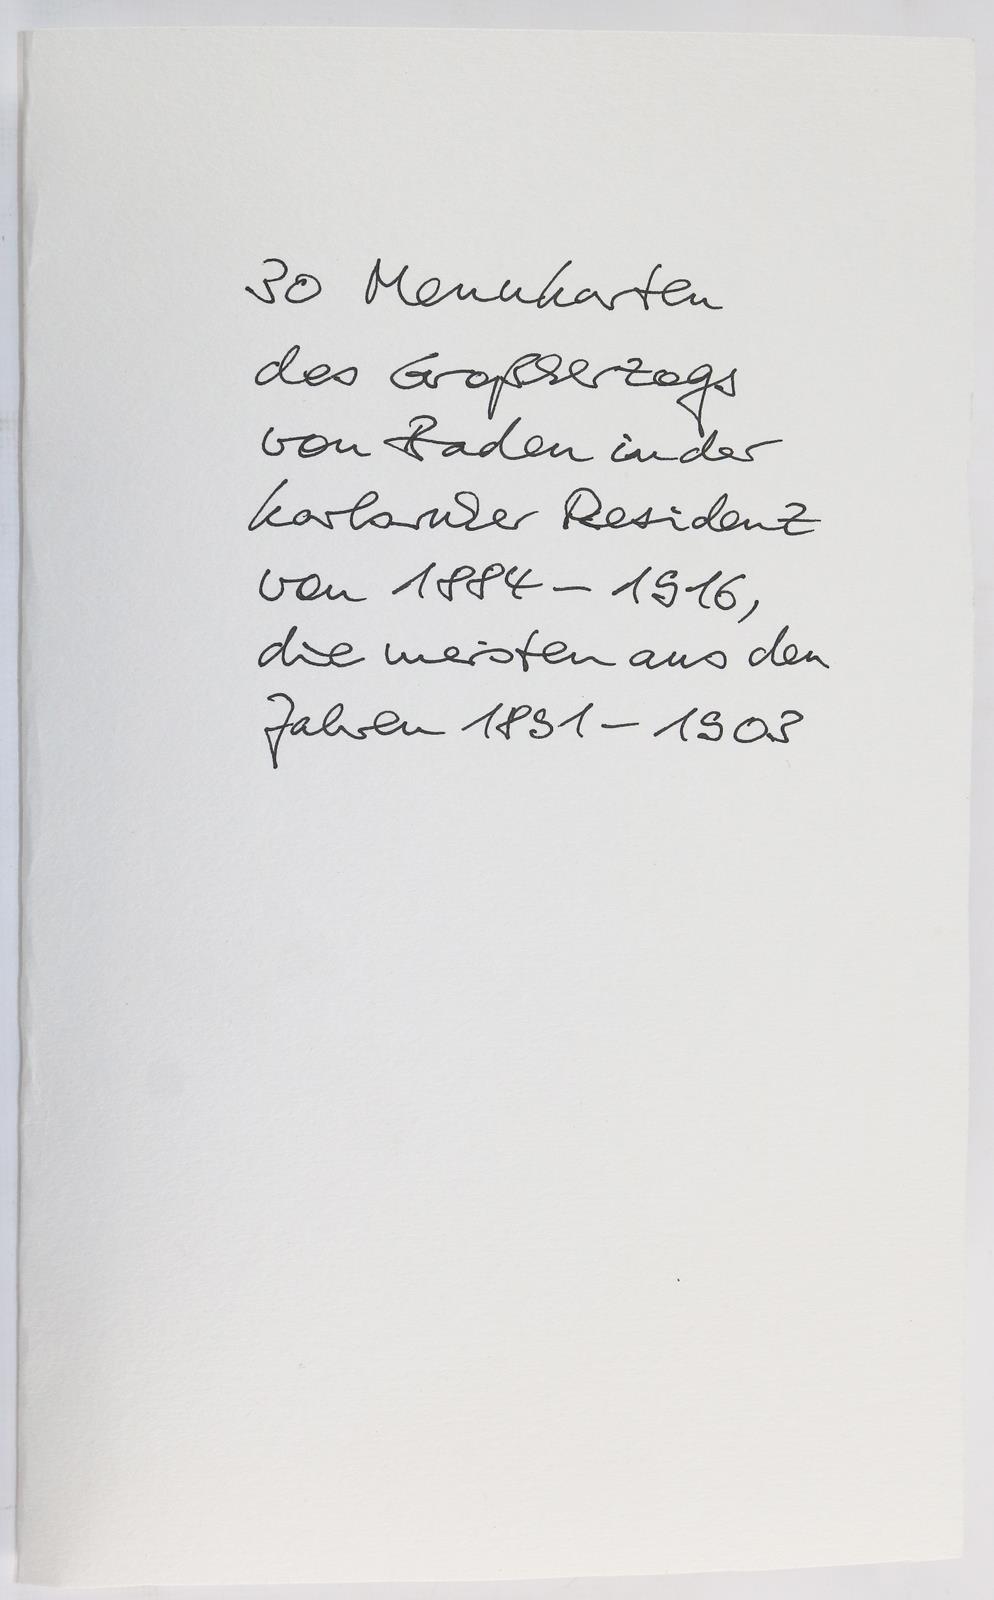 30 Menukarten
des Großherzogs
von Baden in der
Karlsruher Residenz
von 1884 – 1916,
die meisten aus den
Jahren 1891 – 1903